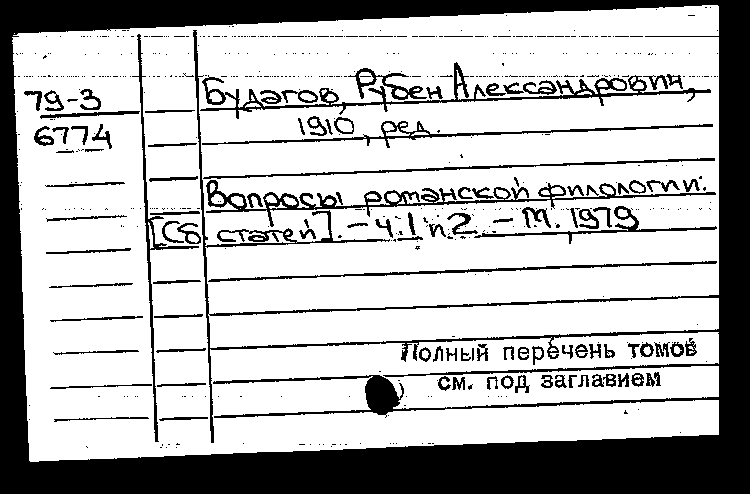 79-3
6774
Будагов, Рубен Александрович,
1910, ред.
Вопросы романской филологии.
[Сб. статей]. – ч. 1 и 2. – М., 1979
Полный перечень томов
см. под заглавием